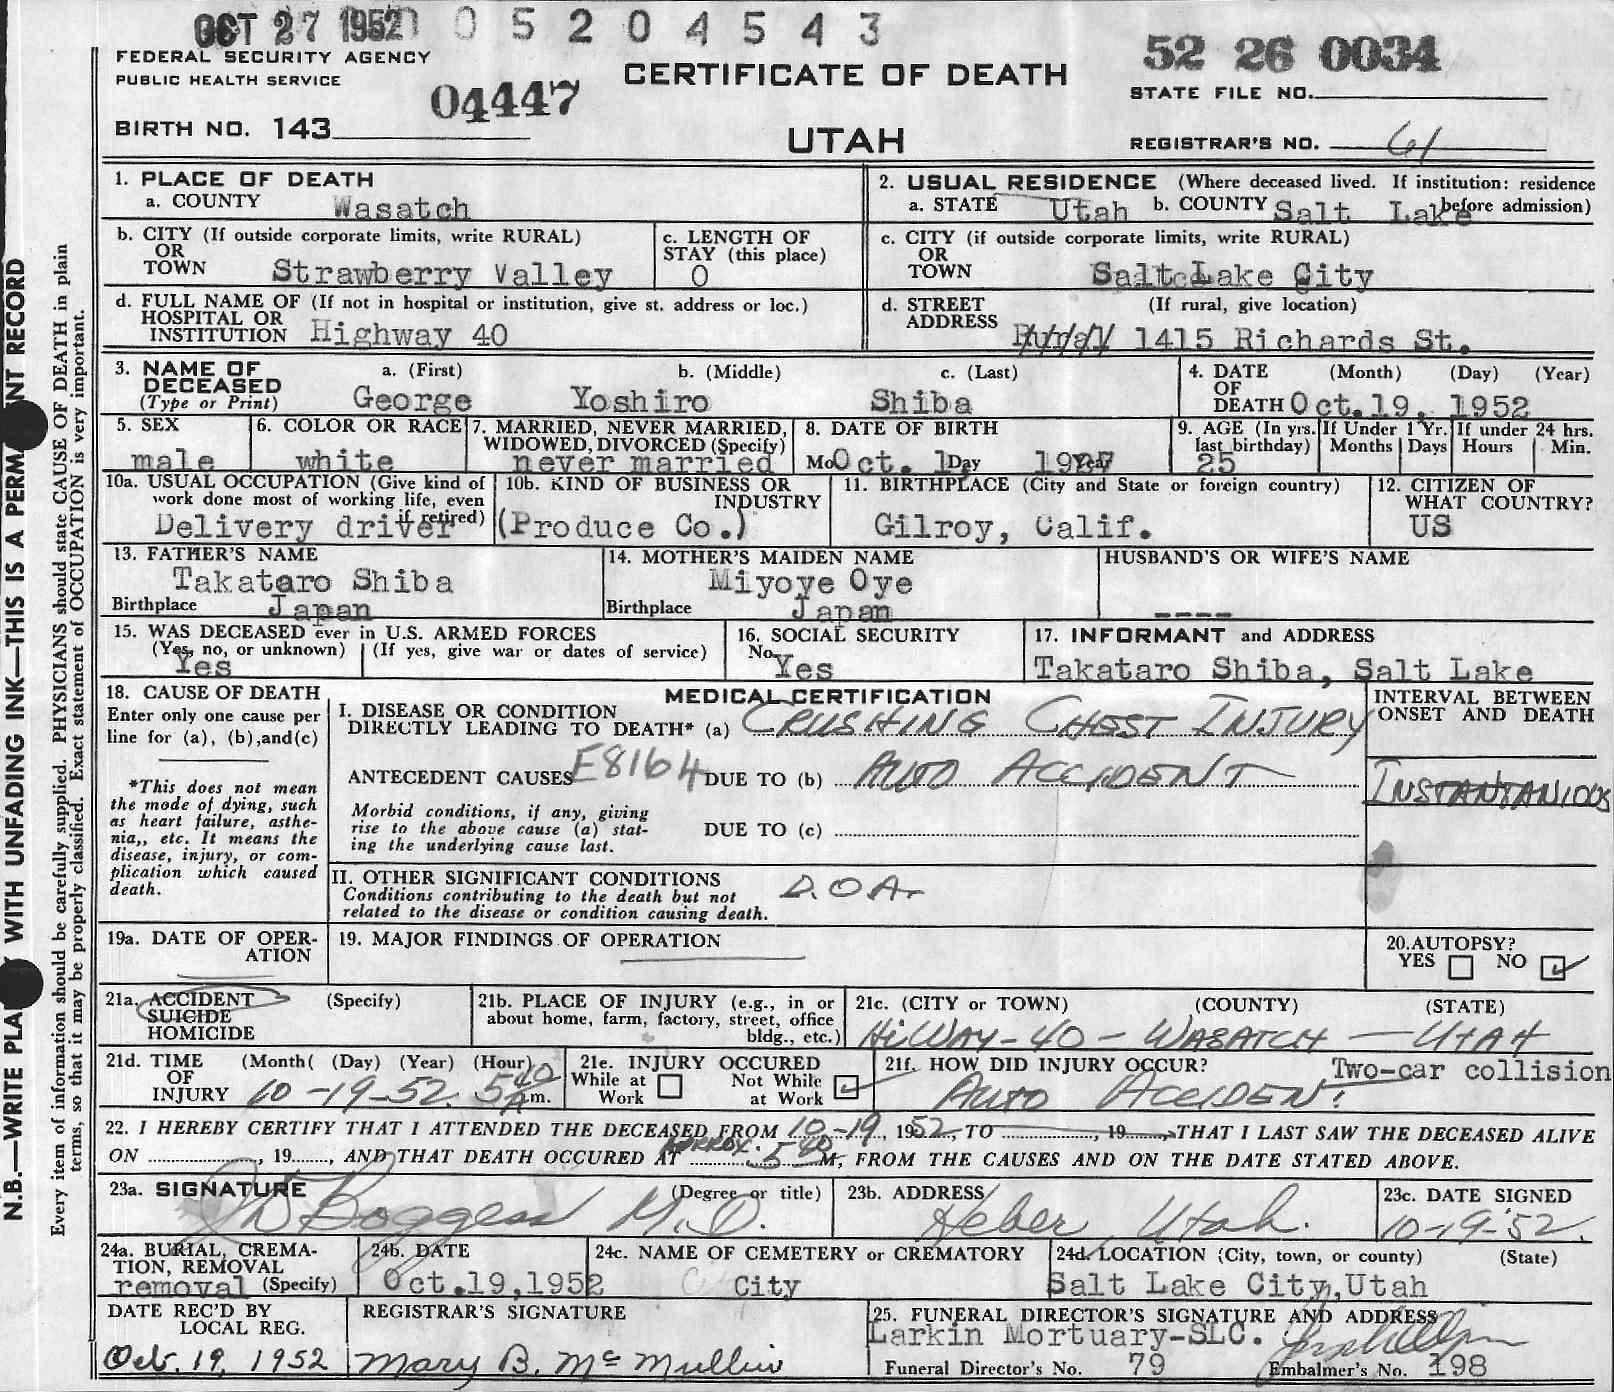 OCT 27 1952 0 5 2 0 4 5 4 3
FEDERAL SECURITY AGENCY
PUBLIC HEALTH SERVICE
04447
BIRTH NO. 143
CERTIFICATE OF DEATH
UTAH
52 26 0034
STATE FILE NO.
REGISTRAR'S NO. 61
N.B.—WRITE PLA Y WITH UNFADING INK—THIS IS A PERM NT RECORD
Every item of information should be carefully supplied. PHYSICIANS should state CAUSE OF DEATH in plain
terms, so that it may be properly classified. Exact statement of OCCUPATION is very important.
1. PLACE OF DEATH
a. COUNTY Wasatch
2. USUAL RESIDENCE (Where deceased lived. If institution: residence
before admission)
a. STATE Utah b. COUNTY Salt Lake
b. CITY (If outside corporate limits, write RURAL)
OR
TOWN Strawberry Valley
c. LENGTH OF
STAY (this place)
0
c. CITY (if outside corporate limits, write RURAL)
OR
TOWN Salt Lake City
d. FULL NAME OF (If not in hospital or institution, give st. address or loc.)
HOSPITAL OR
INSTITUTION Highway 40
d. STREET (If rural, give location)
ADDRESS Rural 1415 Richards St.
3. NAME OF
DECEASED
(Type or Print)
a. (First) b. (Middle) c. (Last)
George Yoshiro Shiba
4. DATE (Month) (Day) (Year)
OF
DEATH Oct. 19, 1952
5. SEX
male
6. COLOR OR RACE
white
7. MARRIED, NEVER MARRIED,
WIDOWED, DIVORCED (Specify)
never married
8. DATE OF BIRTH
Mo Oct. 1 Day 1927 Year
9. AGE (In yrs. last birthday)
25
If Under 1 Yr.
Months Days
If under 24 hrs.
Hours Min.
10a. USUAL OCCUPATION (Give kind of
work done most of working life, even
if retired)
Delivery driver
10b. KIND OF BUSINESS OR
INDUSTRY
(Produce Co.)
11. BIRTHPLACE (City and State or foreign country)
Gilroy, Calif.
12. CITIZEN OF
WHAT COUNTRY?
US
13. FATHER'S NAME
Takataro Shiba
Birthplace Japan
14. MOTHER'S MAIDEN NAME
Miyoye Oye
Birthplace Japan
HUSBAND'S OR WIFE'S NAME
----
15. WAS DECEASED ever in U.S. ARMED FORCES
(Yes, no, or unknown) (If yes, give war or dates of service)
Yes
16. SOCIAL SECURITY
No. Yes
17. INFORMANT and ADDRESS
Takataro Shiba, Salt Lake
18. CAUSE OF DEATH
Enter only one cause per
line for (a), (b),and(c)
*This does not mean
the mode of dying, such
as heart failure, asthe-
nia,, etc. It means the
disease, injury, or com-
plication which caused
death.
MEDICAL CERTIFICATION
I. DISEASE OR CONDITION
DIRECTLY LEADING TO DEATH* (a) CRUSHING CHEST INJURY
ANTECEDENT CAUSES E8164 DUE TO (b) AUTO ACCIDENT
Morbid conditions, if any, giving
rise to the above cause (a) stat-
ing the underlying cause last.
DUE TO (c)
INTERVAL BETWEEN
ONSET AND DEATH
INSTANTANIOUS
II. OTHER SIGNIFICANT CONDITIONS
Conditions contributing to the death but not
related to the disease or condition causing death.
D.O.A.
19a. DATE OF OPER-
ATION
19. MAJOR FINDINGS OF OPERATION
20.AUTOPSY?
YES NO ✓
21a. ACCIDENT (Specify)
SUICIDE
HOMICIDE
21b. PLACE OF INJURY (e.g., in or
about home, farm, factory, street, office
bldg., etc.)
21c. (CITY or TOWN) (COUNTY) (STATE)
HiWAY-40 — WASATCH — UTAH
21d. TIME (Month( (Day) (Year) (Hour)
OF
INJURY 10-19-52. 5:40 p.m.
21e. INJURY OCCURED
While at
Work
Not While
at Work ✓
21f. HOW DID INJURY OCCUR? Two-car collision
AUTO ACCIDENT
22. I HEREBY CERTIFY THAT I ATTENDED THE DECEASED FROM 10-19, 1952, TO , 19 , THAT I LAST SAW THE DECEASED ALIVE
ON , 19 , AND THAT DEATH OCCURED AT APPROX. 5 40 M, FROM THE CAUSES AND ON THE DATE STATED ABOVE.
23a. SIGNATURE (Degree or title)
Boggess M.D.
23b. ADDRESS
Heber, Utah.
23c. DATE SIGNED
10-19-52.
24a. BURIAL, CREMA-
TION, REMOVAL
removal (Specify)
24b. DATE
Oct.19,1952
24c. NAME OF CEMETERY or CREMATORY
City
24d. LOCATION (City, town, or county) (State)
Salt Lake City, Utah
DATE REC'D BY
LOCAL REG.
Oct. 19, 1952
REGISTRAR'S SIGNATURE
Mary B. McMullin
25. FUNERAL DIRECTOR'S SIGNATURE AND ADDRESS
Larkin Mortuary-SLC.
Funeral Director's No. 79 Embalmer's No. 198